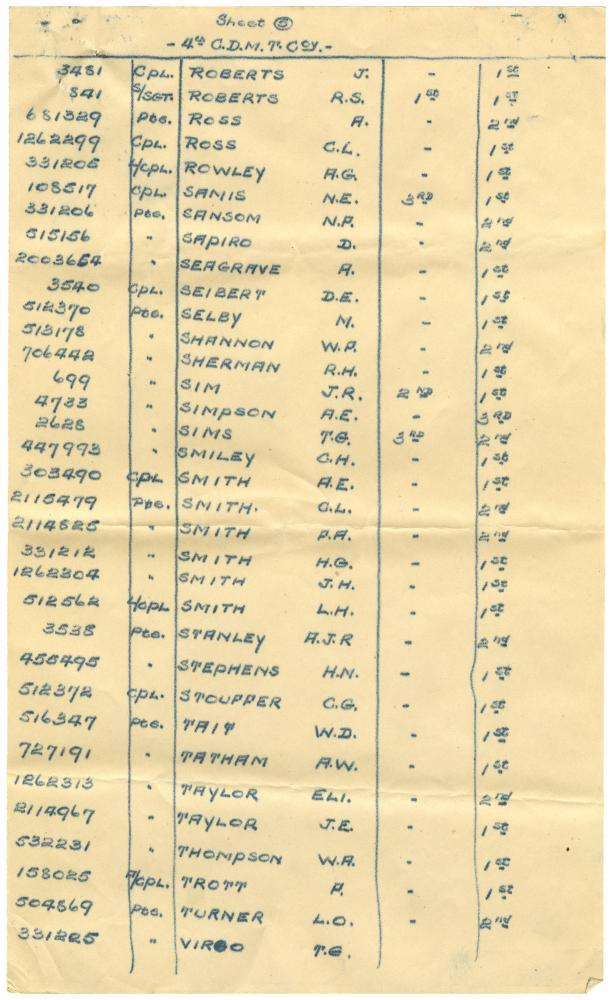 Sheet 6
- 4th C.D.M.T. Coy. -
3481 Cpl. ROBERTS J. - 1st
841 S/Sgt. ROBERTS R.S. 1st 1st
681329 Pte. ROSS A. - 2nd
1262299 Cpl. ROSS C.L. - 1st
331205 L/Cpl. ROWLEY A.G. - 1st
108517 Cpl. SAMIS N.E. 3rd 1st
331206 Pte. SANSOM N.P. - 2nd
515156 " SAPIRO D. - 2nd
2003654 " SEAGRAVE A. - 1st
3540 Cpl. SEIBERT D.E. - 1st
512370 Pte. SELBY M. - 1st
513178 " SHANNON W.P. - 2nd
706442 " SHERMAN R.H. - 1st
699 " SIM J.R. 2nd 1st
4733 " SIMPSON A.E. - 3rd
2628 " SIMS T.G. 3rd 2nd
447993 " SMILEY C.H. - 1st
303490 Cpl SMITH A.E. - 1st
2115479 Pte. SMITH. C.L. - 2nd
2114525 " SMITH P.A. - 2nd
331212 " SMITH H.G. - 1st
1262304 " SMITH J.H. - 1st
512562 L/Cpl SMITH L.H. - 1st
3538 Pte. STANLEY A.J.R - 2nd
455495 " STEPHENS H.N. - 1st
512372 Cpl. STOUPPER C.G. - 1st
516347 Pte. TAIT W.D. - 1st
727191 " TATHAM A.W. - 1st
1262313 " TAYLOR ELI. - 2nd
2114967 " TAYLOR J.E. - 1st
532231 " THOMPSON W.A. - 1st
158025 A/Cpl. TROTT P. - 1st
504869 Pte. TURNER L.O. - 2nd
331225 " VIRGO T.G. -